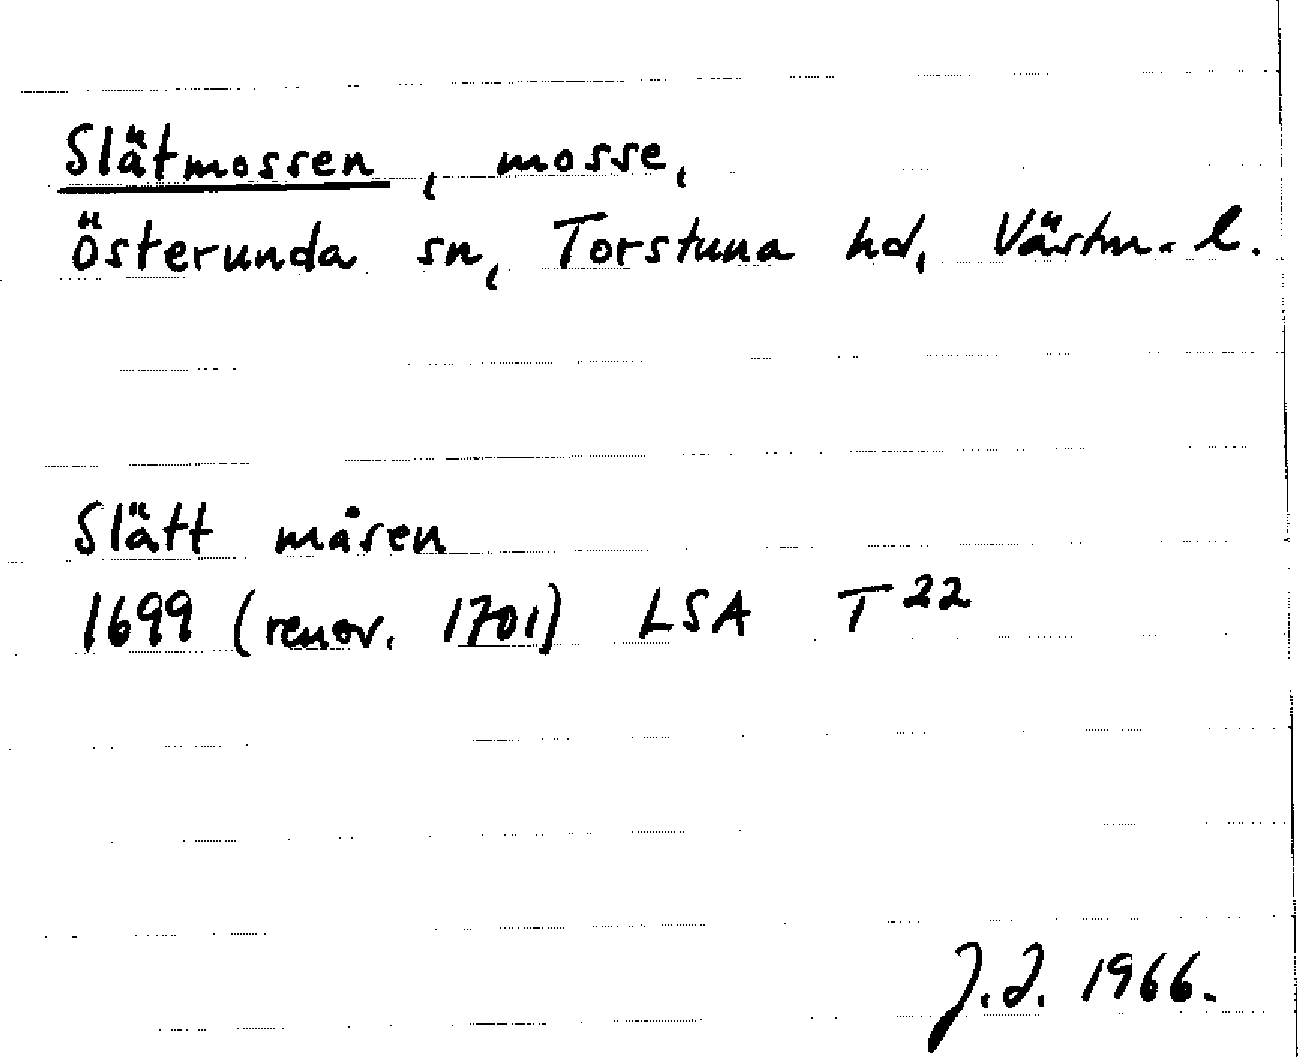 Slätmossen, mosse,
Österunda sn, Torstuna hd, Västm. l.
Slätt måsen
1699 (renov. 1701) LSA T 22
J.J. 1966.